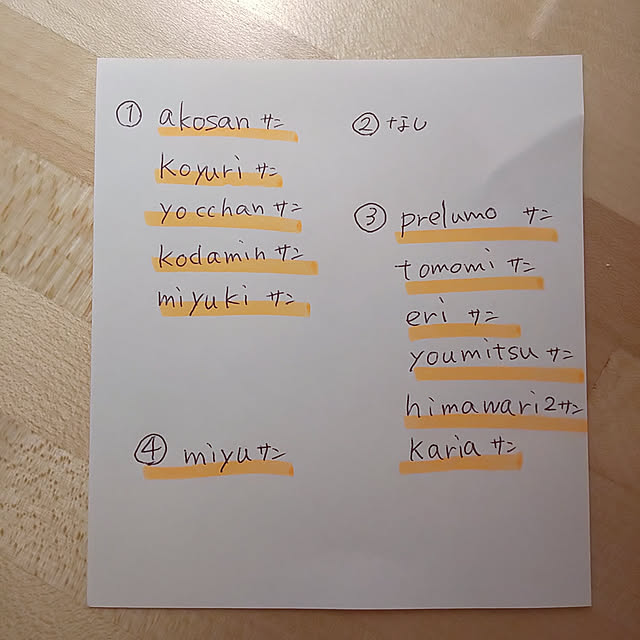 ① akosan サン
koyuri サン
yocchan サン
kodamin サン
miyuki サン
② なし
③ prelumo サン
tomomi サン
eri サン
youmitsu サン
himawari2サン
karia サン
④ miyuサン